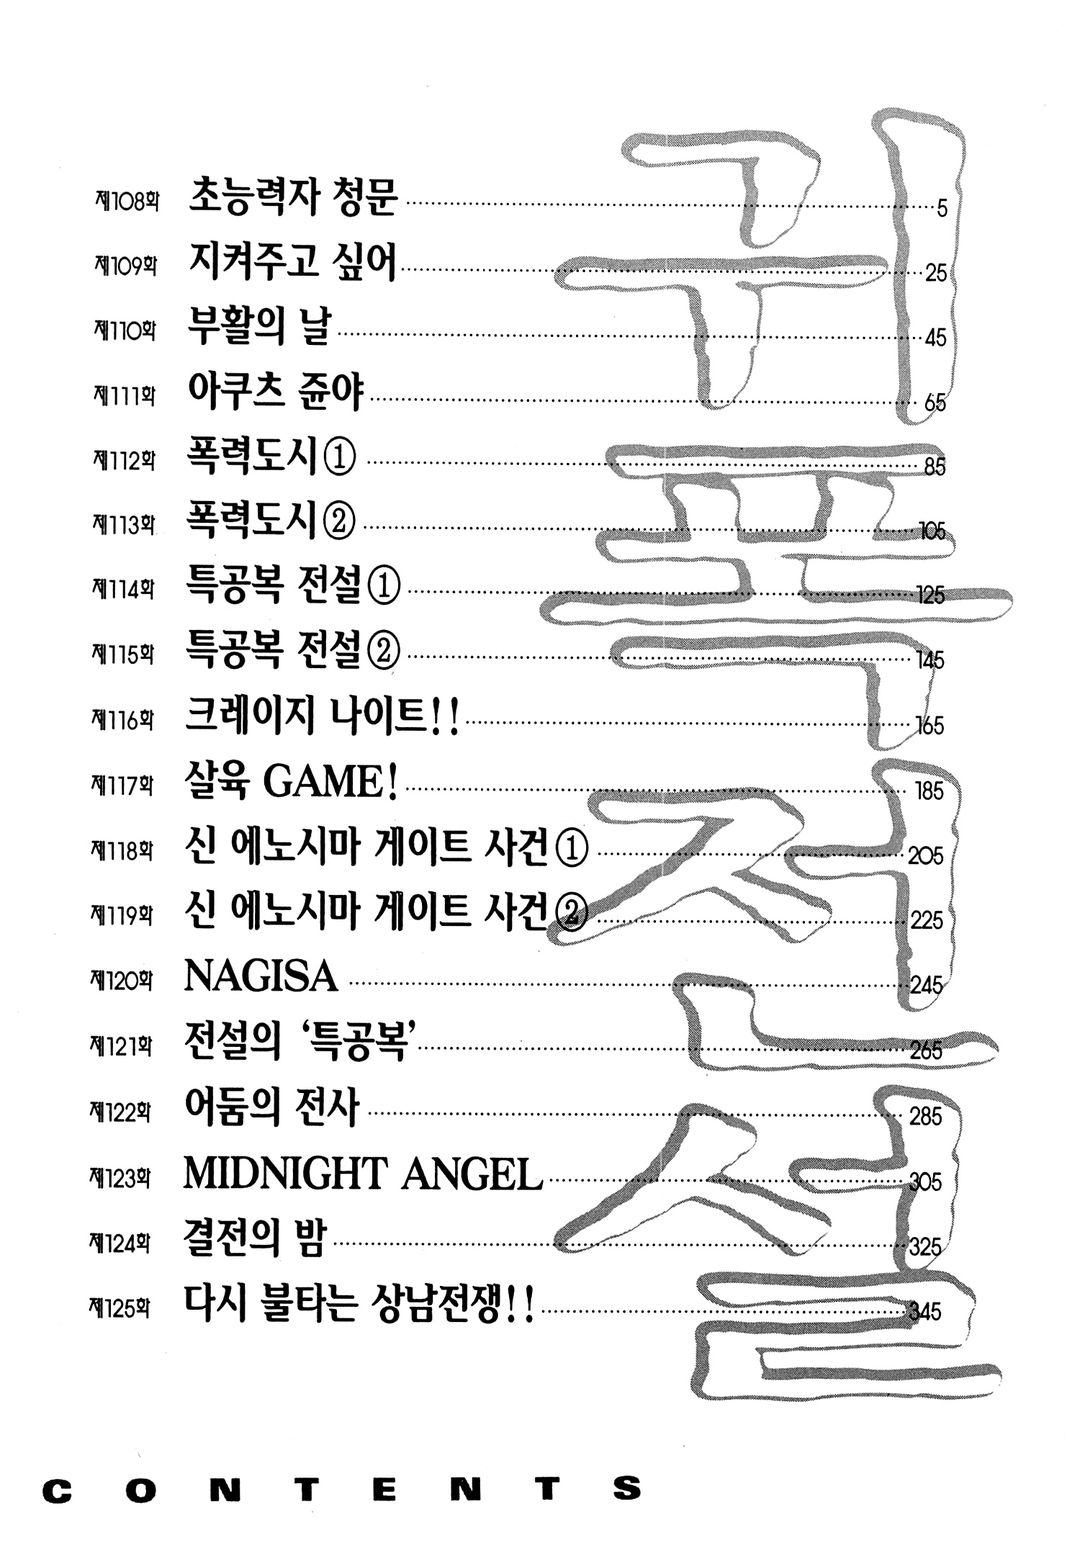 귀폭전설
제108화 초능력자 청문 5
제109화 지켜주고 싶어 25
제110화 부활의 날 45
제111화 아쿠츠 쥰야 65
제112화 폭력도시① 85
제113화 폭력도시② 105
제114화 특공복 전설① 125
제115화 특공복 전설② 145
제116화 크레이지 나이트!! 165
제117화 살육 GAME! 185
제118화 신 에노시마 게이트 사건① 205
제119화 신 에노시마 게이트 사건② 225
제120화 NAGISA 245
제121화 전설의 ‘특공복’ 265
제122화 어둠의 전사 285
제123화 MIDNIGHT ANGEL 305
제124화 결전의 밤 325
제125화 다시 불타는 상남전쟁!! 345
CONTENTS